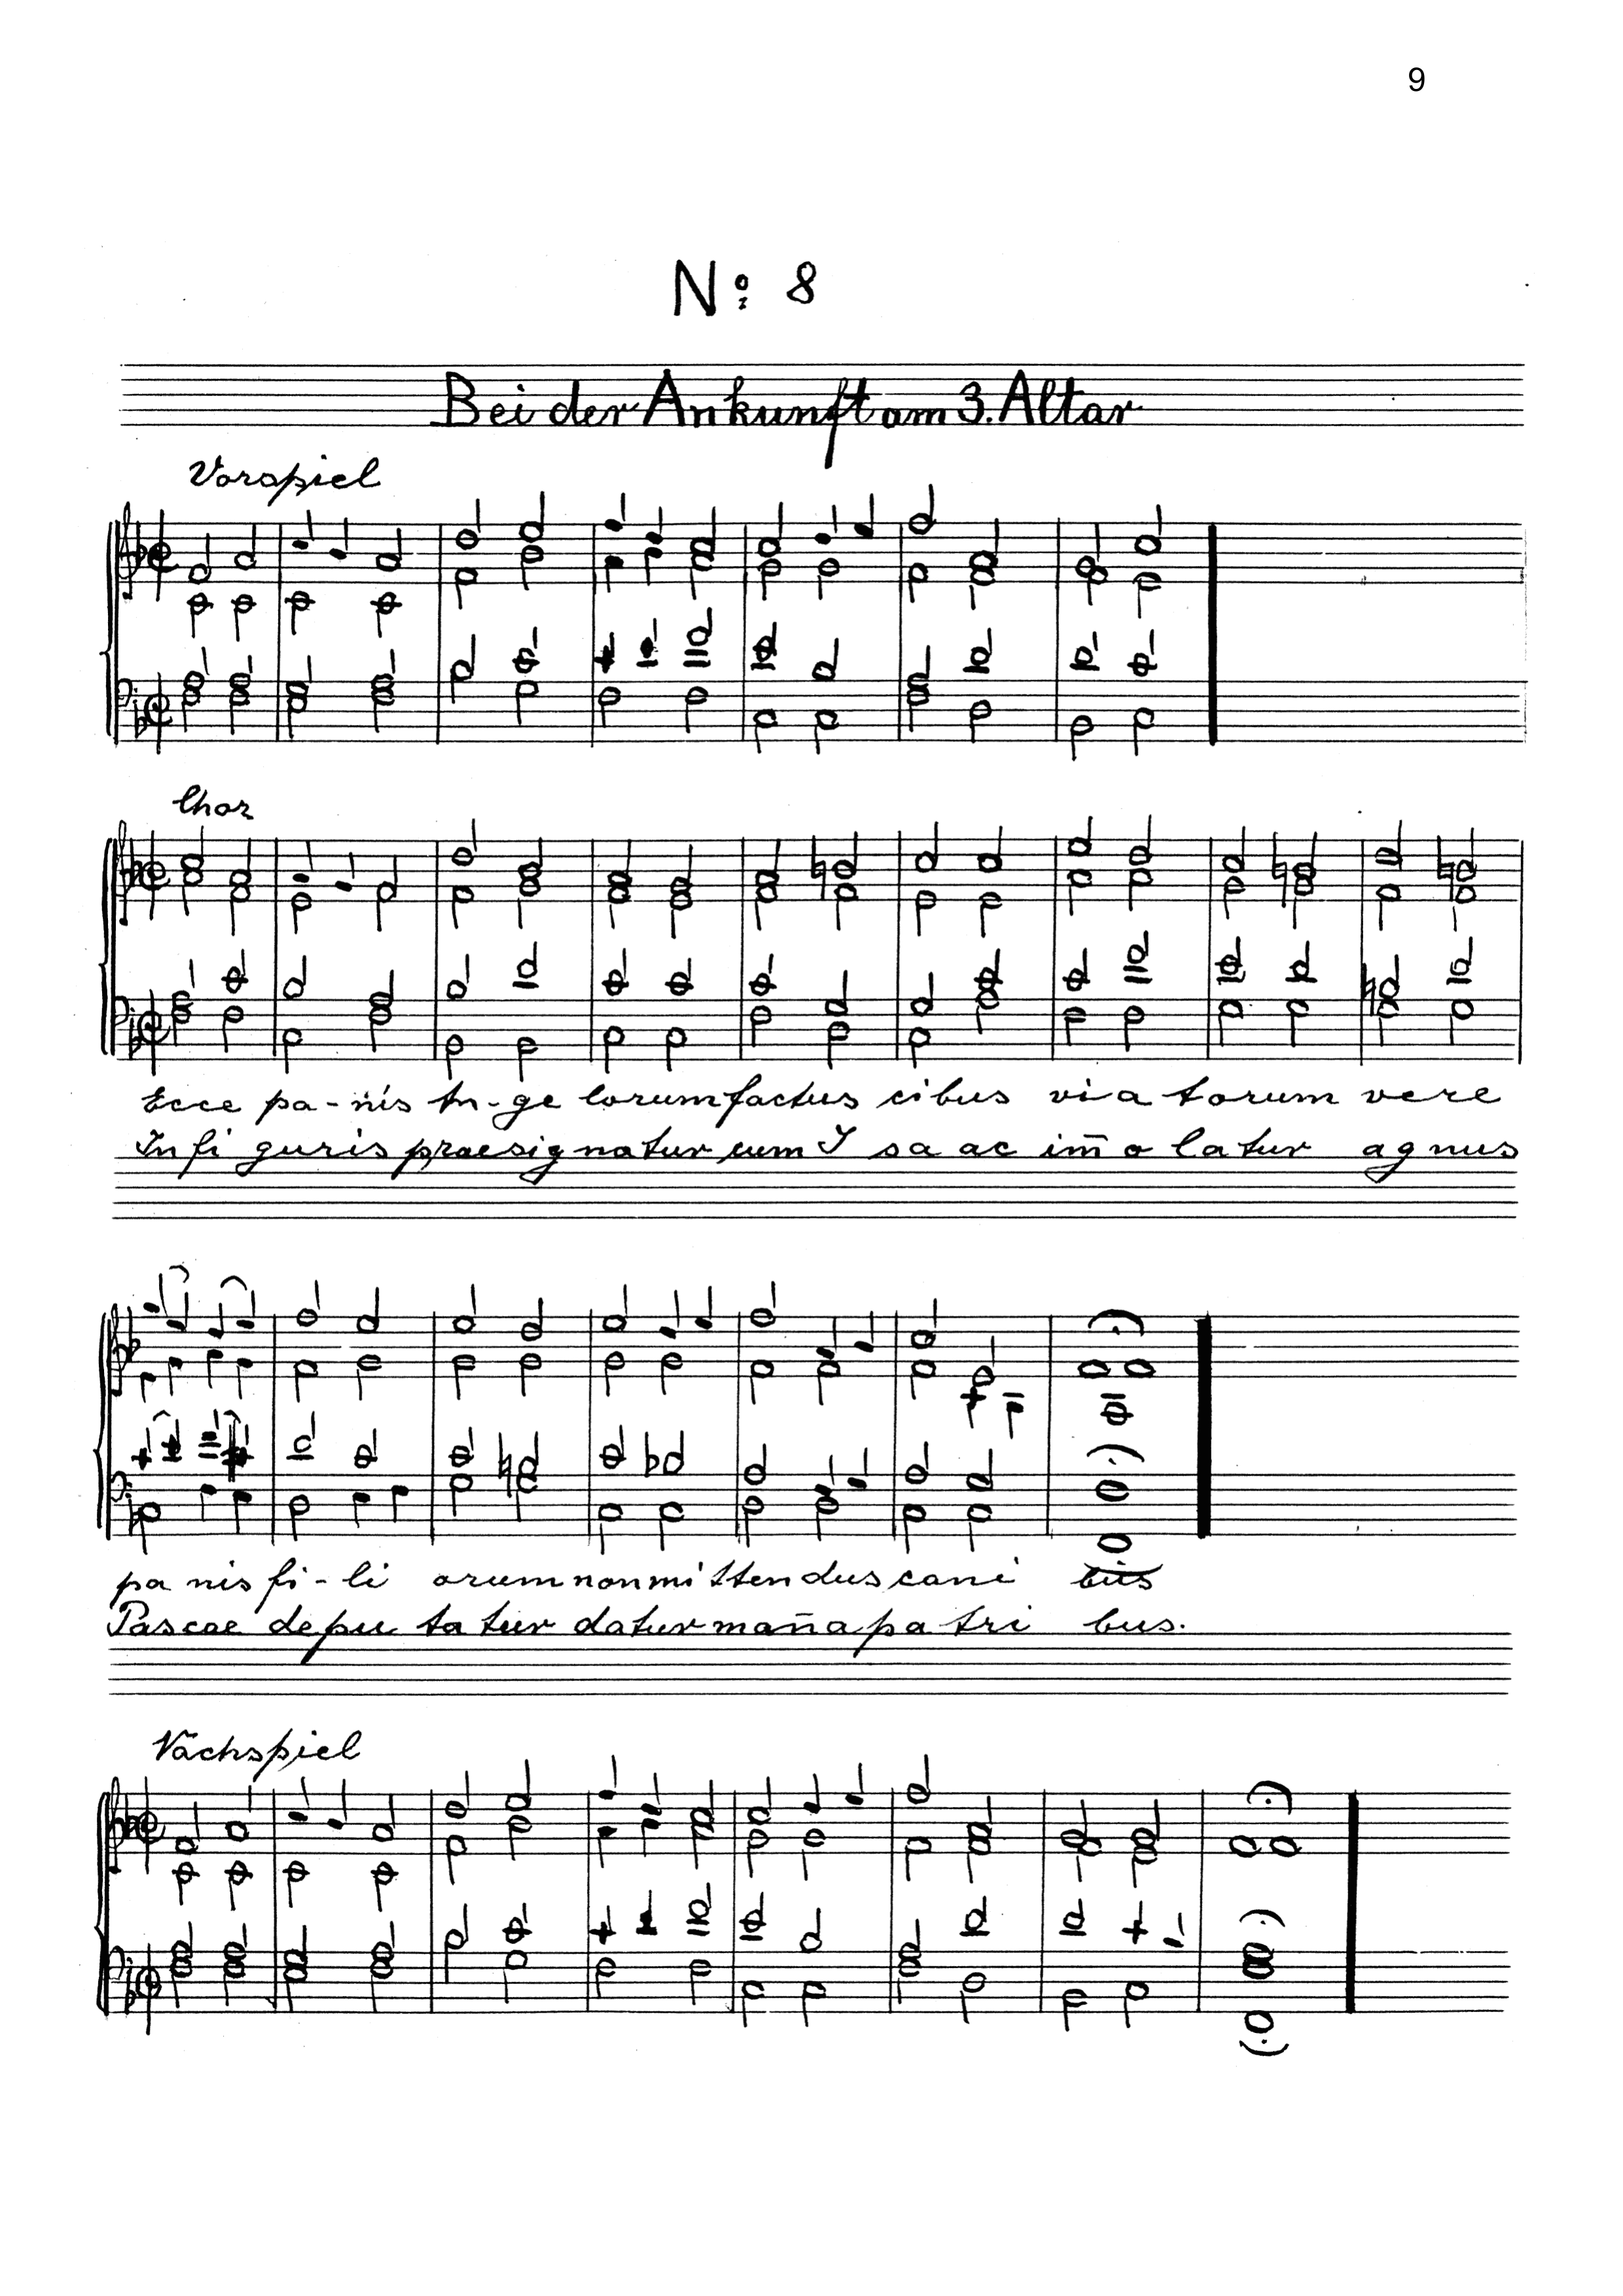 9
No: 8
Bei der Ankunft am 3. Altar
Vorspiel
Chor
Ecce pa-nis An-ge lorum factus cibus via torum vere
In fi guris praesig natur cum I sa ac im̄ o la tur ag nus
pa nis fi-li orum non mi tten dus cani bus
Pascae depu ta tur datur mañapa tri bus.
Nachspiel